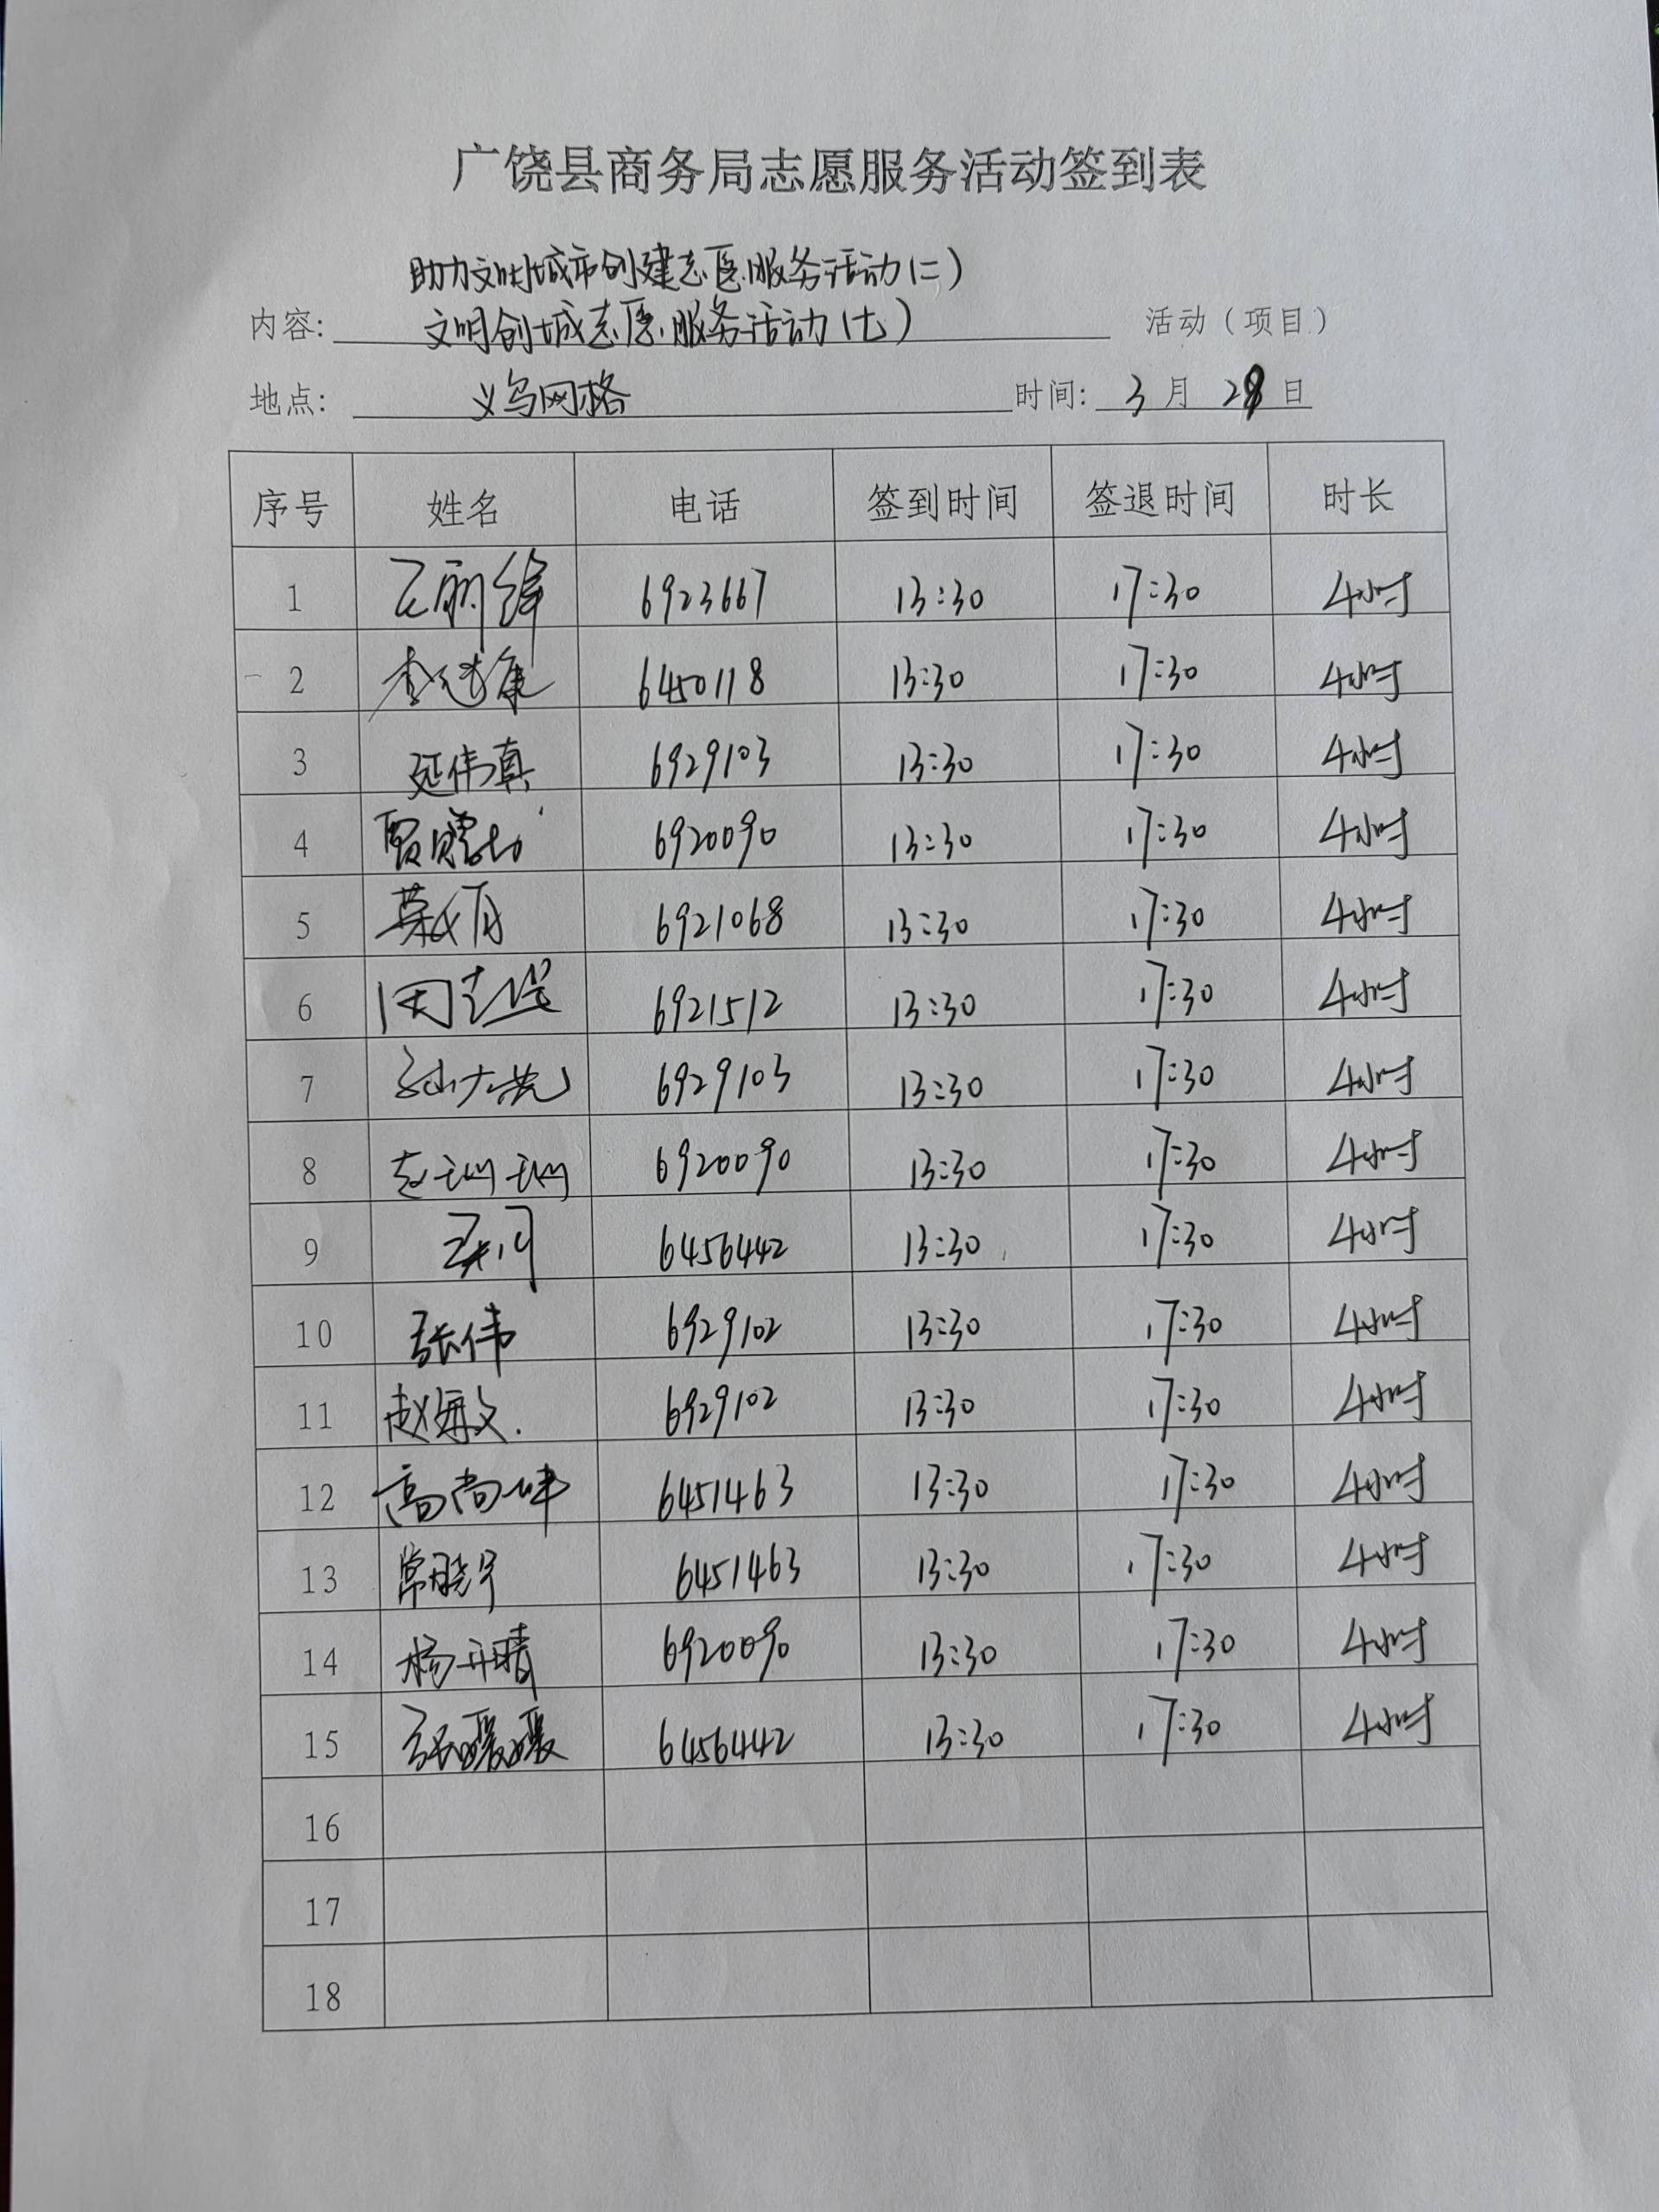 广饶县商务局志愿服务活动签到表
助力文明城市创建志愿服务活动(二)
内容: 文明创城志愿服务活动(七) 活动(项目)
地点: 义乌网格 时间: 3月28日
序号 姓名 电话 签到时间 签退时间 时长
1 6923667 13:30 17:30 4小时
2 6450118 13:30 17:30 4小时
3 延伟真 6929103 13:30 17:30 4小时
4 6920090 13:30 17:30 4小时
5 6921068 13:30 17:30 4小时
6 6921512 13:30 17:30 4小时
7 6929103 13:30 17:30 4小时
8 赵珊珊 6920090 13:30 17:30 4小时
9 6456442 13:30 17:30 4小时
10 张伟 6929102 13:30 17:30 4小时
11 赵海文 6929102 13:30 17:30 4小时
12 高尚坤 6451463 13:30 17:30 4小时
13 常晓宇 6451463 13:30 17:30 4小时
14 杨丹晴 6920090 13:30 17:30 4小时
15 张媛媛 6456442 13:30 17:30 4小时
16
17
18